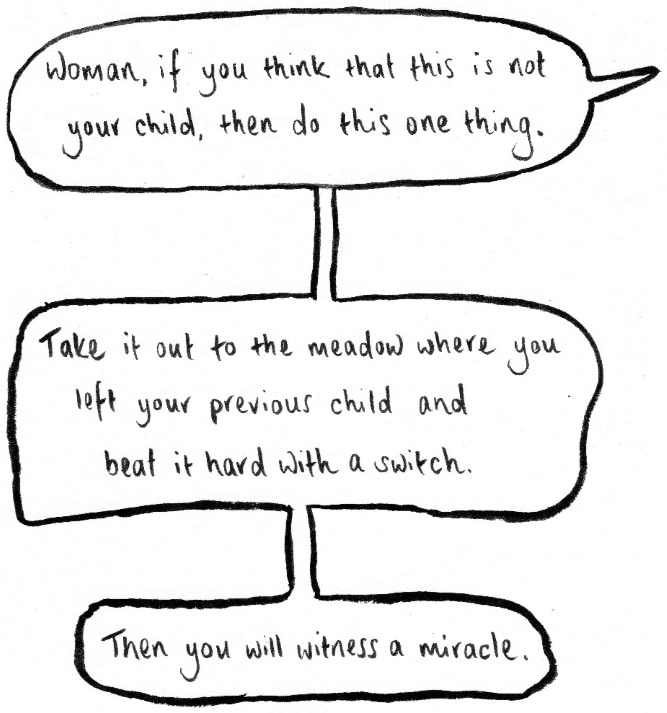 Woman, if you think that this is not
your child, then do this one thing.
Take it out to the meadow where you
left your previous child and
beat it hard with a switch.
Then you will witness a miracle.